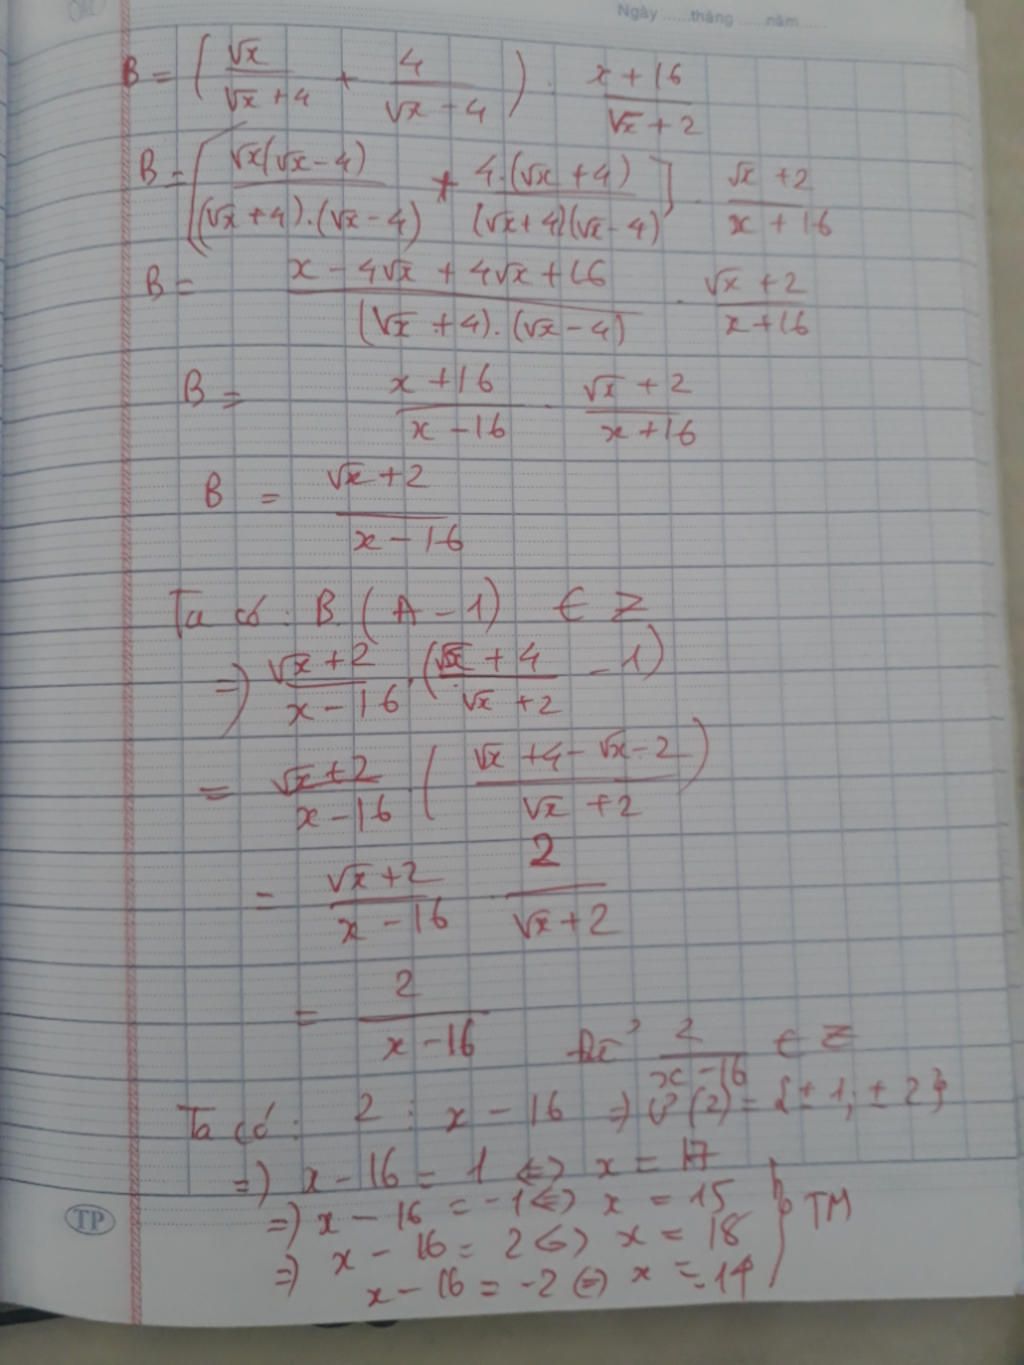 Ngày ......tháng ......năm ......
B = ( √x / (√x + 4) + 4 / (√x - 4) ) . (x + 16) / (√x + 2)
B = [ √x(√x - 4) / ((√x + 4).(√x - 4)) + 4.(√x + 4) / ((√x + 4)(√x - 4)) ] . (√x + 2) / (x + 16)
B = (x - 4√x + 4√x + 16) / ((√x + 4).(√x - 4)) . (√x + 2) / (x + 16)
B = (x + 16) / (x - 16) . (√x + 2) / (x + 16)
B = (√x + 2) / (x - 16)
Ta có : B.(A - 1) ∈ Z
=> (√x + 2) / (x - 16) . ( (√x + 4) / (√x + 2) - 1)
= (√x + 2) / (x - 16) . ( (√x + 4 - √x - 2) / (√x + 2) )
= (√x + 2) / (x - 16) . 2 / (√x + 2)
= 2 / (x - 16) Để 2 / (x - 16) ∈ Z
Ta có : 2 : x - 16 => Ư(2) = {± 1; ± 2}
=> x - 16 = 1 <=> x = 17
=> x - 16 = -1 <=> x = 15
=> x - 16 = 2 <=> x = 18
x - 16 = -2 <=> x = 14
} TM
TP